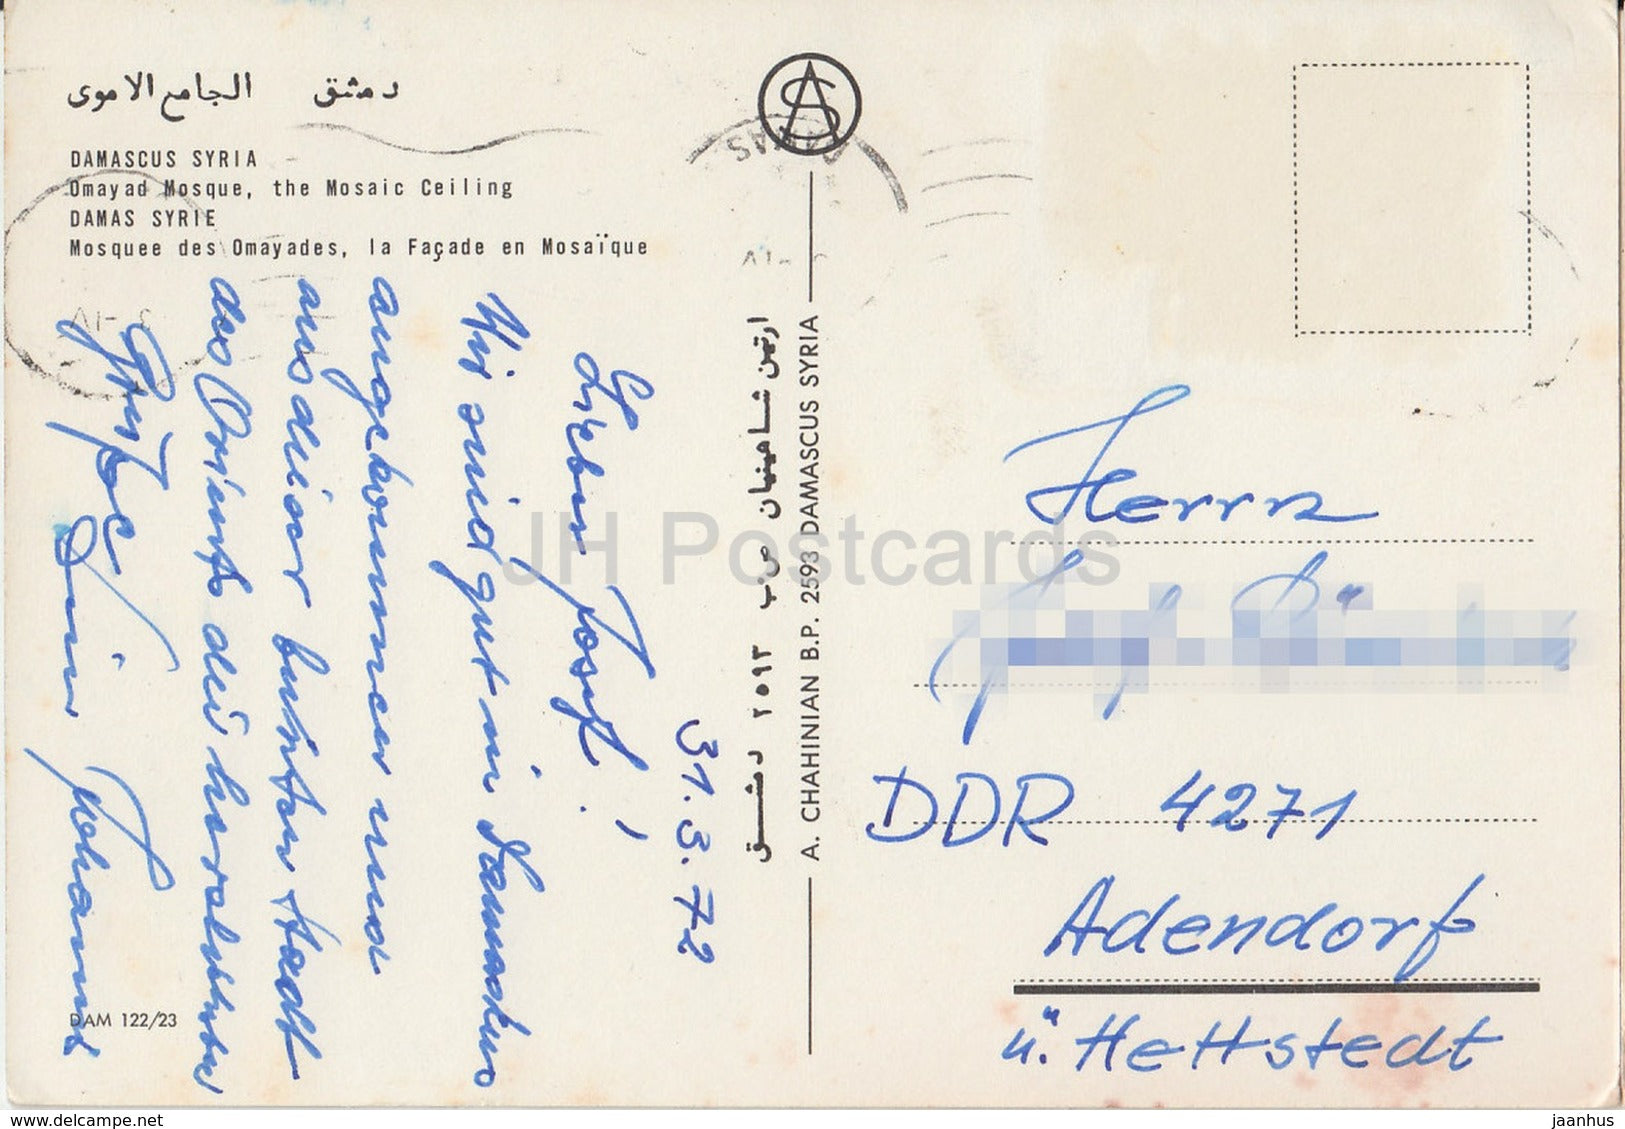 الجامع الاموى دمشق
DAMASCUS SYRIA
Omayad Mosque, the Mosaic Ceiling
DAMAS SYRIE
Mosquee des Omayades, la Façade en Mosaïque
31.3.72
Lieber Josef!
Wir sind gut in Damaskus
angekommen und
aus dieser bunten Stadt
des Orients die herzlichsten
Grüße
Dein Johannes
DAM 122/23
AS
DAMAS
ارتين شاهينيان ص.ب ٢٥٩٣ دمشق
A. CHAHINIAN B.P. 2593 DAMASCUS SYRIA
Herrn
DDR 4271
Adendorf
ü. Hettstedt
JH Postcards
delcampe.net
jaanhus